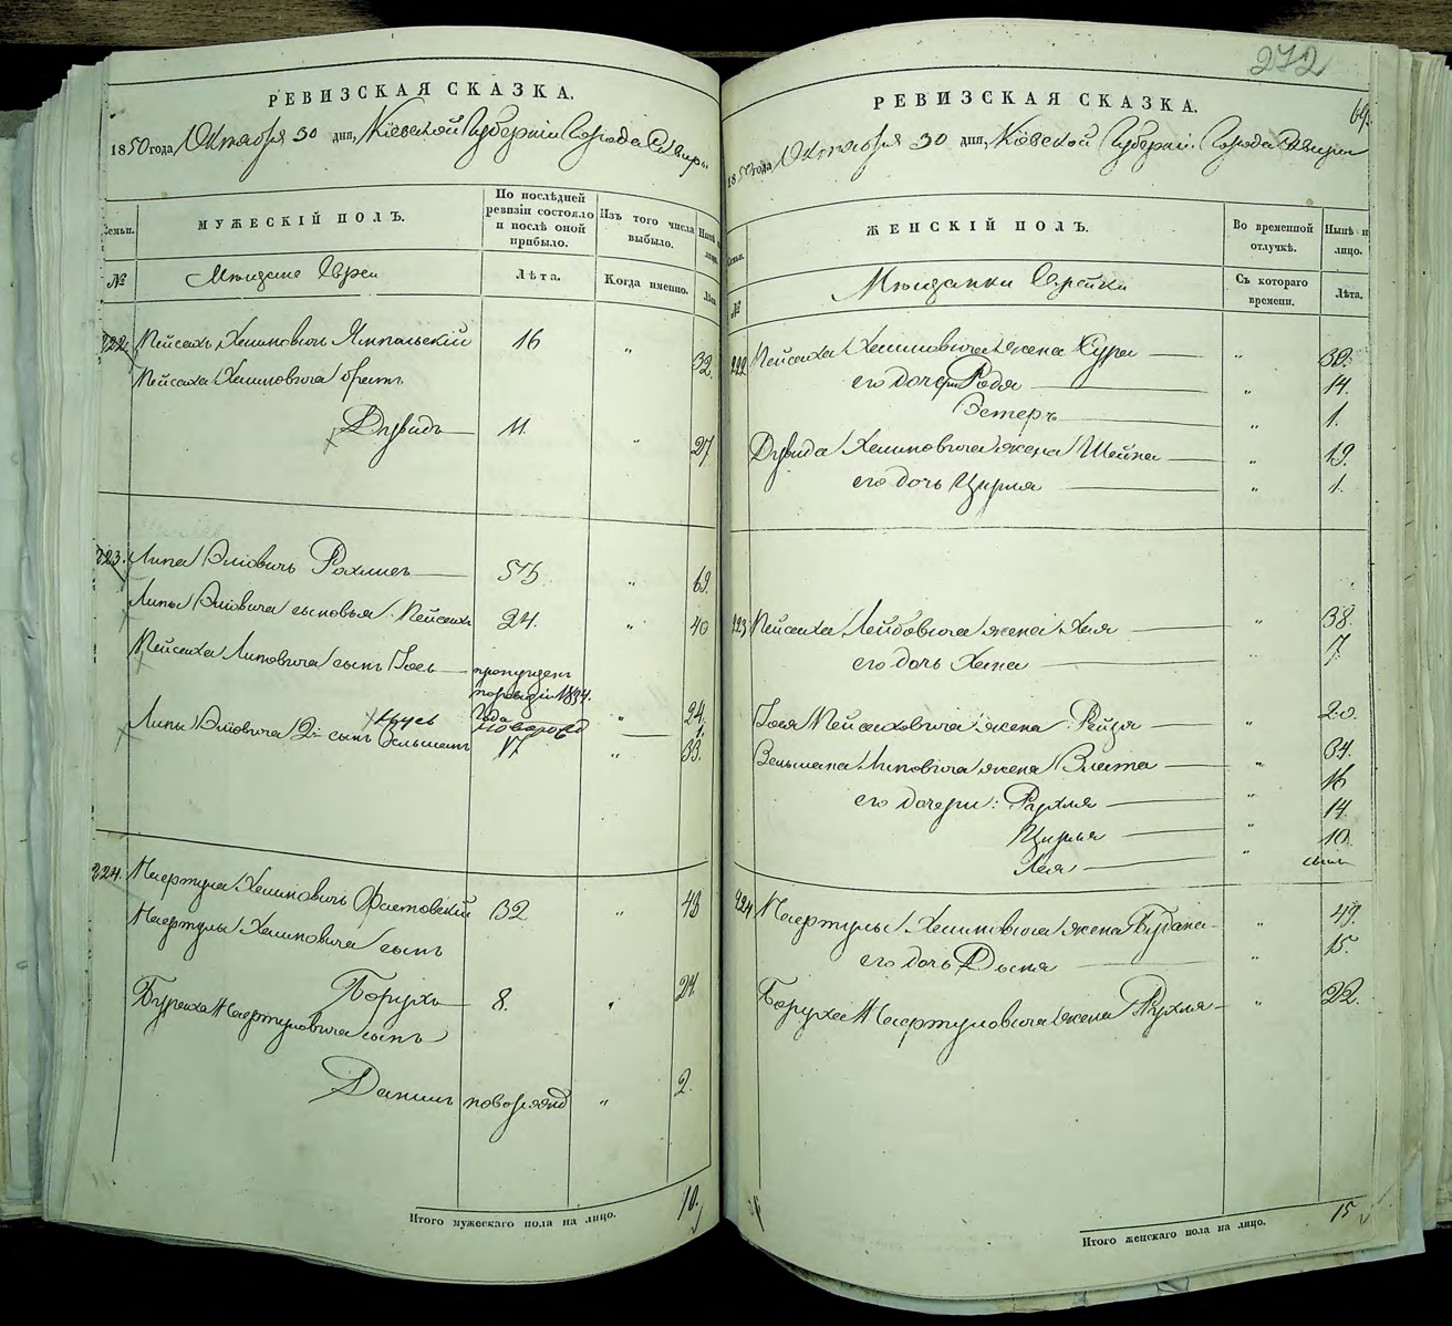 РЕВИЗСКАЯ СКАЗКА.
1850 года Октября 30 дня, Кіевской Губерніи Города Сквиры
Семьи.
МУЖЕСКІЙ ПОЛЪ.
По послѣдней ревизіи состояло и послѣ оной прибыло.
Изъ того числа выбыло.
Нынѣ на лицо.
№
Мѣщане Евреи
Лѣта.
Когда именно.
Лѣта
222. Пейсахъ Хаимовичъ Ямпольскій 16 " 32.
Пейсаха Хаимовича братъ
Дувидъ 11. " 27
223. Липа Эліовичъ 55 " 69.
Липы Эліовича сыновья: Пейсахъ 24. " 40
Пейсаха Липовича сынъ Іось пропущенъ
по ревизіи 1834.
года " 24.
новорожд 1.
Липы Эліовича 2й сынъ Зельманъ 17 " 33.
224. Хаимовичъ Фастовскій 32 " 48
Хаимовича сынъ
Борухъ 8. " 24.
сынъ
Данилъ новорожд " 2.
Итого мужескаго пола на лицо. 10.
272
РЕВИЗСКАЯ СКАЗКА.
1850 года Октября 30 дня, Кіевской Губерніи Города Сквиры
Семьи.
ЖЕНСКІЙ ПОЛЪ.
Во временной отлучкѣ.
Нынѣ на лицо.
№
Мѣщанки Еврейки
Съ котораго времени.
Лѣта.
222 Пейсаха Хаимовича жена Сура " 32.
его дочери Рося " 14.
Эстеръ " 1.
Дувида Хаимовича жена Шейна " 19.
его дочь Цирля " 1.
223 Пейсаха Лейбовича жена Хая " 38.
его дочь Хана " 7
Іося Пейсаховича жена Рейзя " 20.
Зельмана Липовича жена Злата " 34.
его дочери: Рухля " 16
Цирля " 14.
Лея " 10.
224 Хаимовича жена " 49.
его дочь " 15.
Боруха жена Рухля " 22.
Итого женскаго пола на лицо. 15